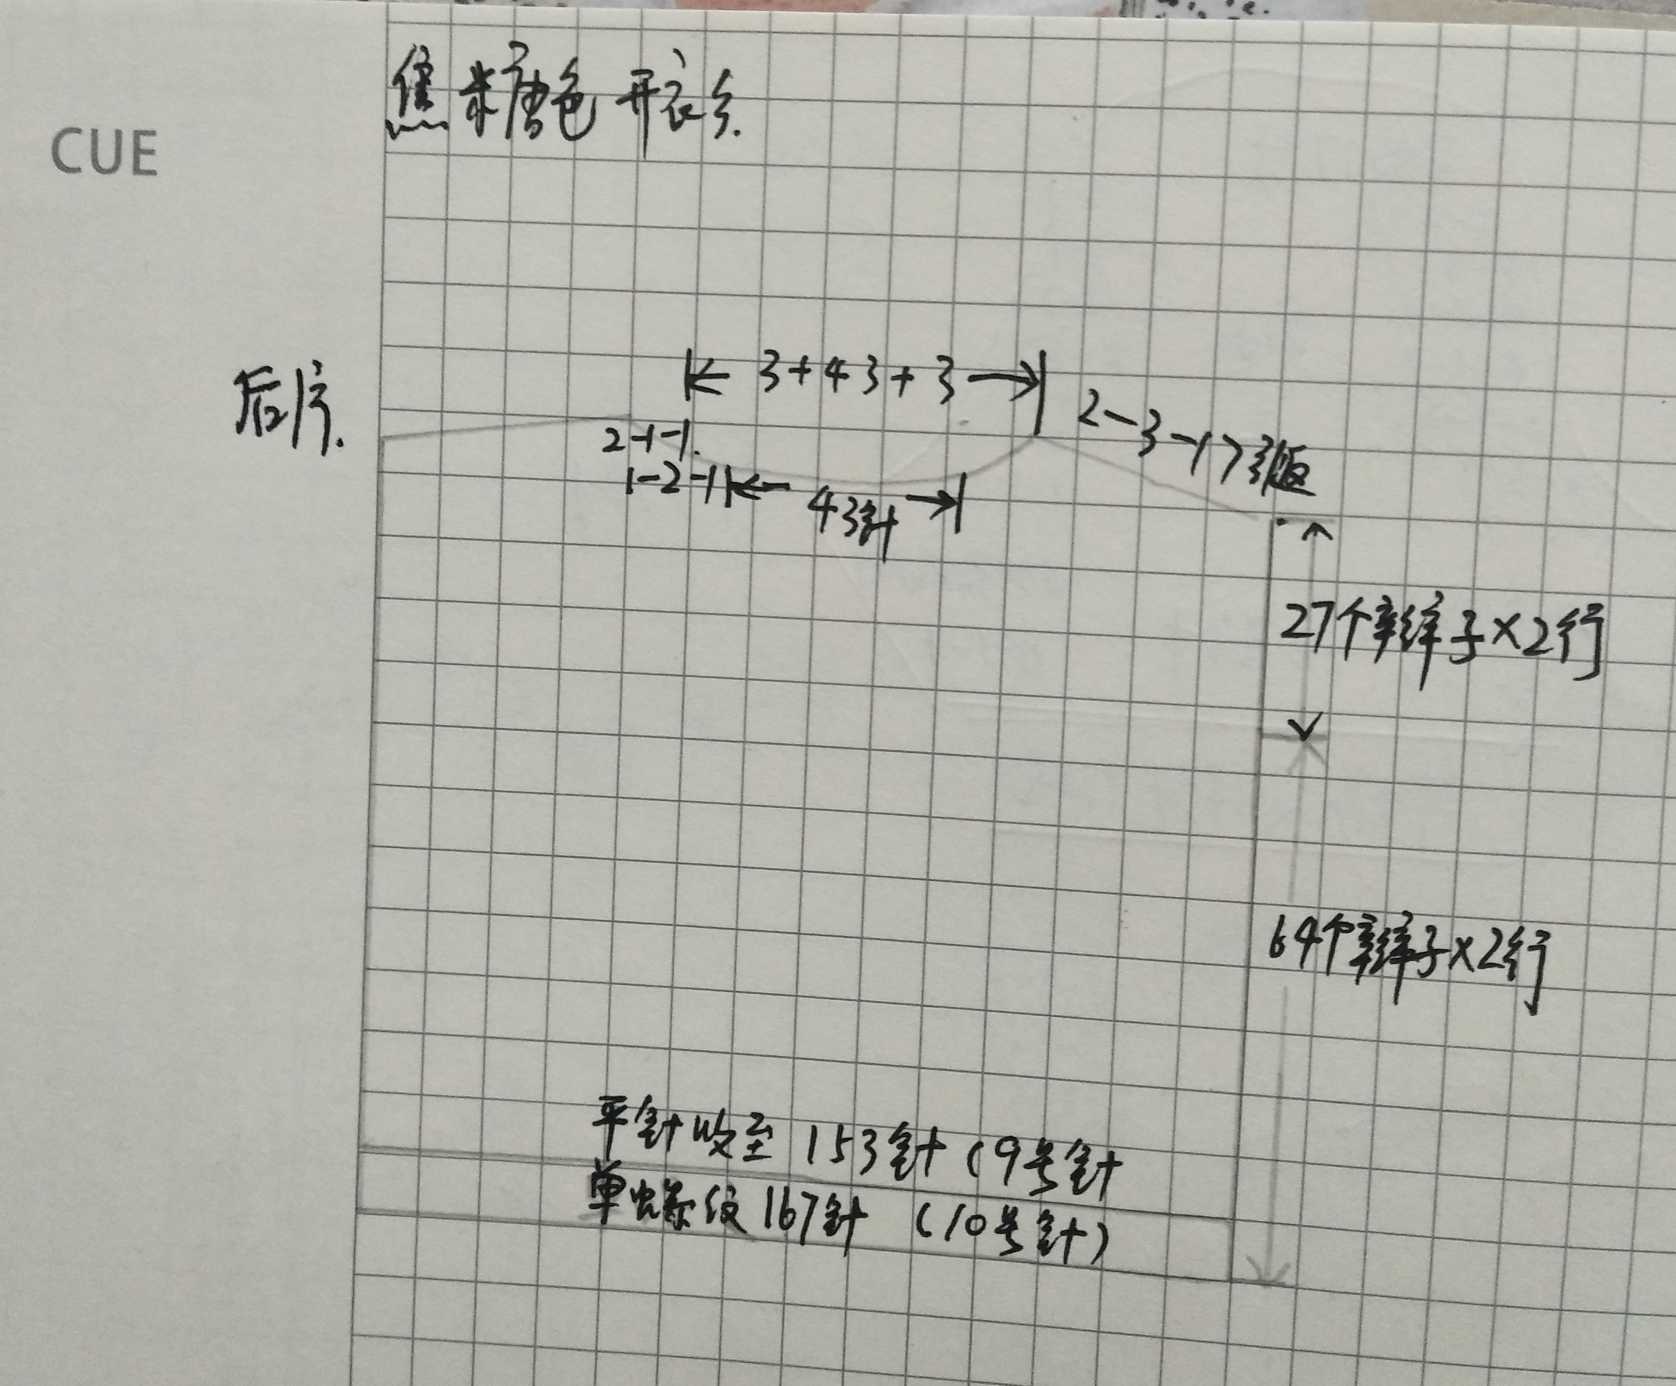 焦糖色 开衣纟.
CUE
后片.
3+43+3
2-3-17引返
2-1-1.
1-2-1
43针
27个辫子×2行
64个辫子×2行
平针收至 153针 (9号针
单螺纹 167针 (10号针)